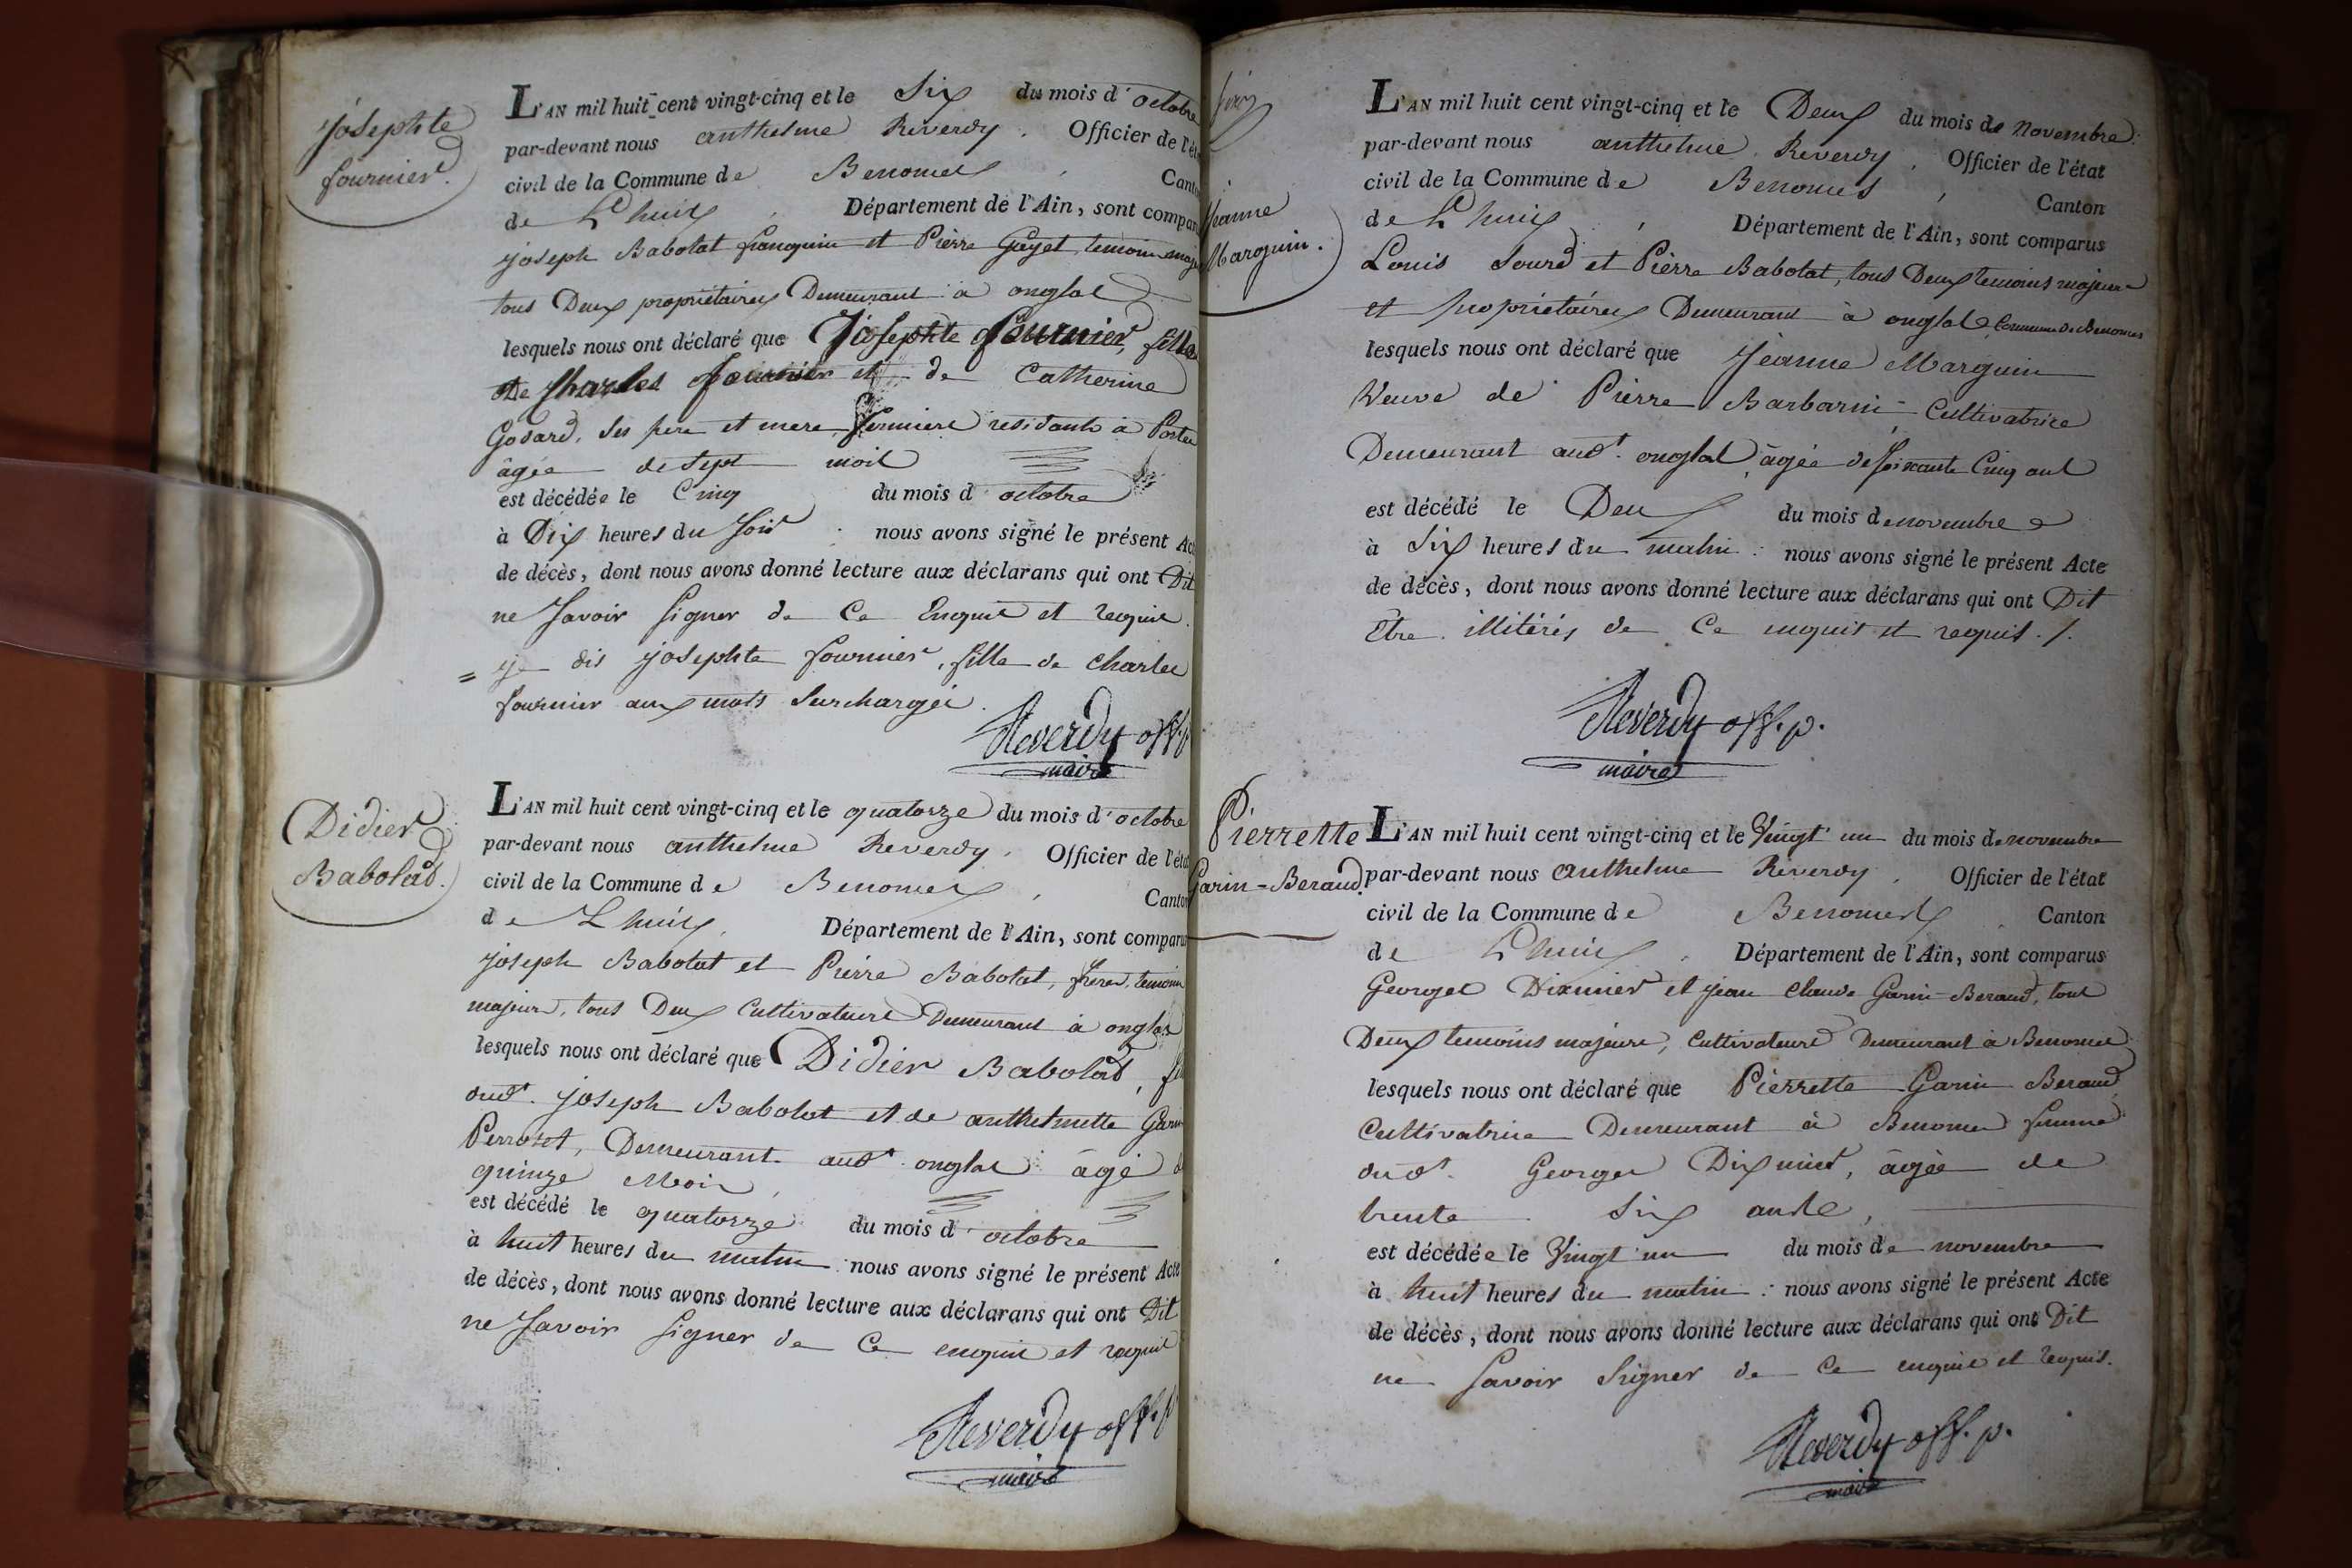 josephte
fournier.
L'AN mil huit cent vingt-cinq et le Six du mois d'octobre
par-devant nous anthelme Reverdy, Officier de l'ét
civil de la Commune de Benonces, Cant
de Lhuis, Département de l'Ain, sont compar
joseph Babolat franquin et Pièrre Gayet, temoins maje
tous Deux propriétaires Demeurant à onglas
lesquels nous ont déclaré que josephte fournier, fille
de Charles fournier et de Catherine
Godard, ses pere et mere, fermiers residants a Porte
âgée de sept mois
est décédée le Cinq du mois d'octobre
à Dix heures du soir : nous avons signé le présent Ac
de décès, dont nous avons donné lecture aux déclarans qui ont Dit
ne savoir signer de Ce Enquis et requis.
= je dis josephte fournier, fille de Charles
fournier aux mots surchargés.
Reverdy off. p
maire
Didier
Babolat.
L'AN mil huit cent vingt-cinq et le quatorze du mois d'octobre
par-devant nous anthelme Reverdy, Officier de l'éta
civil de la Commune de Benonces, Canton
de Lhuis, Département de l'Ain, sont comparu
joseph Babolat et Pièrre Babolat, frères, temoins
majeurs, tous Deux Cultivateurs Demeurant à onglas
lesquels nous ont déclaré que Didier Babolat, fil
dudt. joseph Babolat et de anthelmette Garin
Perroset, Demeurant audt. onglas âgé d
quinze Mois,
est décédé le quatorze du mois d'octobre
à huit heures du matin : nous avons signé le présent Acte
de décès, dont nous avons donné lecture aux déclarans qui ont Dit
ne savoir signer de Ce enquis et requis
Reverdy off. p
maire
jeanne
Marguin.
L'AN mil huit cent vingt-cinq et le Deux du mois de Novembre
par-devant nous anthelme Reverdy, Officier de l'état
civil de la Commune de Benonces, Canton
de Lhuis, Département de l'Ain, sont comparus
Louis Sourd et Pièrre Babolat, tous Deux temoins majeurs
et propriétaires Demeurant à onglas Commune de Benonces
lesquels nous ont déclaré que jeanne Marguin
Veuve de Pièrre Barbarin Cultivatrice
Demeurant audt. onglas, âgée de soixante Cinq ans
est décédé le Deux du mois de novembre
à Six heures du matin : nous avons signé le présent Acte
de décès, dont nous avons donné lecture aux déclarans qui ont Dit
être illitérés de Ce enquis et requis./.
Reverdy off. p.
maire
Pierrette
Garin-Beraud.
L'AN mil huit cent vingt-cinq et le Vingt un du mois de novembre
par-devant nous anthelme Reverdy, Officier de l'état
civil de la Commune de Benonces, Canton
de Lhuis, Département de l'Ain, sont comparus
Georges Dixmier et jean Claude Garin-Beraud, tous
Deux temoins majeurs, Cultivateurs Demeurant à Benonces
lesquels nous ont déclaré que Pierrette Garin Beraud
Cultivatrice Demeurant à Benonces femme
dudt. Georges Dixmier, âgée de
trente Six ans,
est décédée le Vingt un du mois de novembre
à huit heures du matin : nous avons signé le présent Acte
de décès, dont nous avons donné lecture aux déclarans qui ont Dit
ne savoir Signer de Ce enquis et requis.
Reverdy off. p.
maire